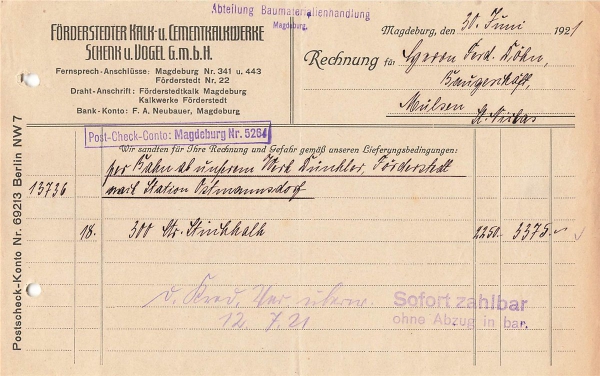 Abteilung Baumaterialienhandlung
Magdeburg.
FÖRDERSTEDTER KALK- u. CEMENTKALKWERKE
SCHENK u. VOGEL G.m.b.H.
Fernsprech-Anschlüsse: Magdeburg Nr. 341 u. 443
Förderstedt Nr. 22
Draht-Anschrift: Förderstedtkalk Magdeburg
Kalkwerke Förderstedt
Bank-Konto: F. A. Neubauer, Magdeburg
Post-Check-Conto: Magdeburg Nr. 5264
Magdeburg, den 30. Juni 1921
Rechnung für Herrn Ferd. Döhn,
Baugeschäft,
Mülsen
St. Niclas
Wir sandten für Ihre Rechnung und Gefahr gemäß unseren Lieferungsbedingungen:
per Bahn ab unserem Werk Förderstedt
13736 nach Station Ortmannsdorf
18. 300 Ztr. Stückkalk 22 50 3375.-
d. Kred. Ver. überw.
12.7.21
Sofort zahlbar
ohne Abzug in bar.
Postscheck-Konto Nr. 69213 Berlin NW 7